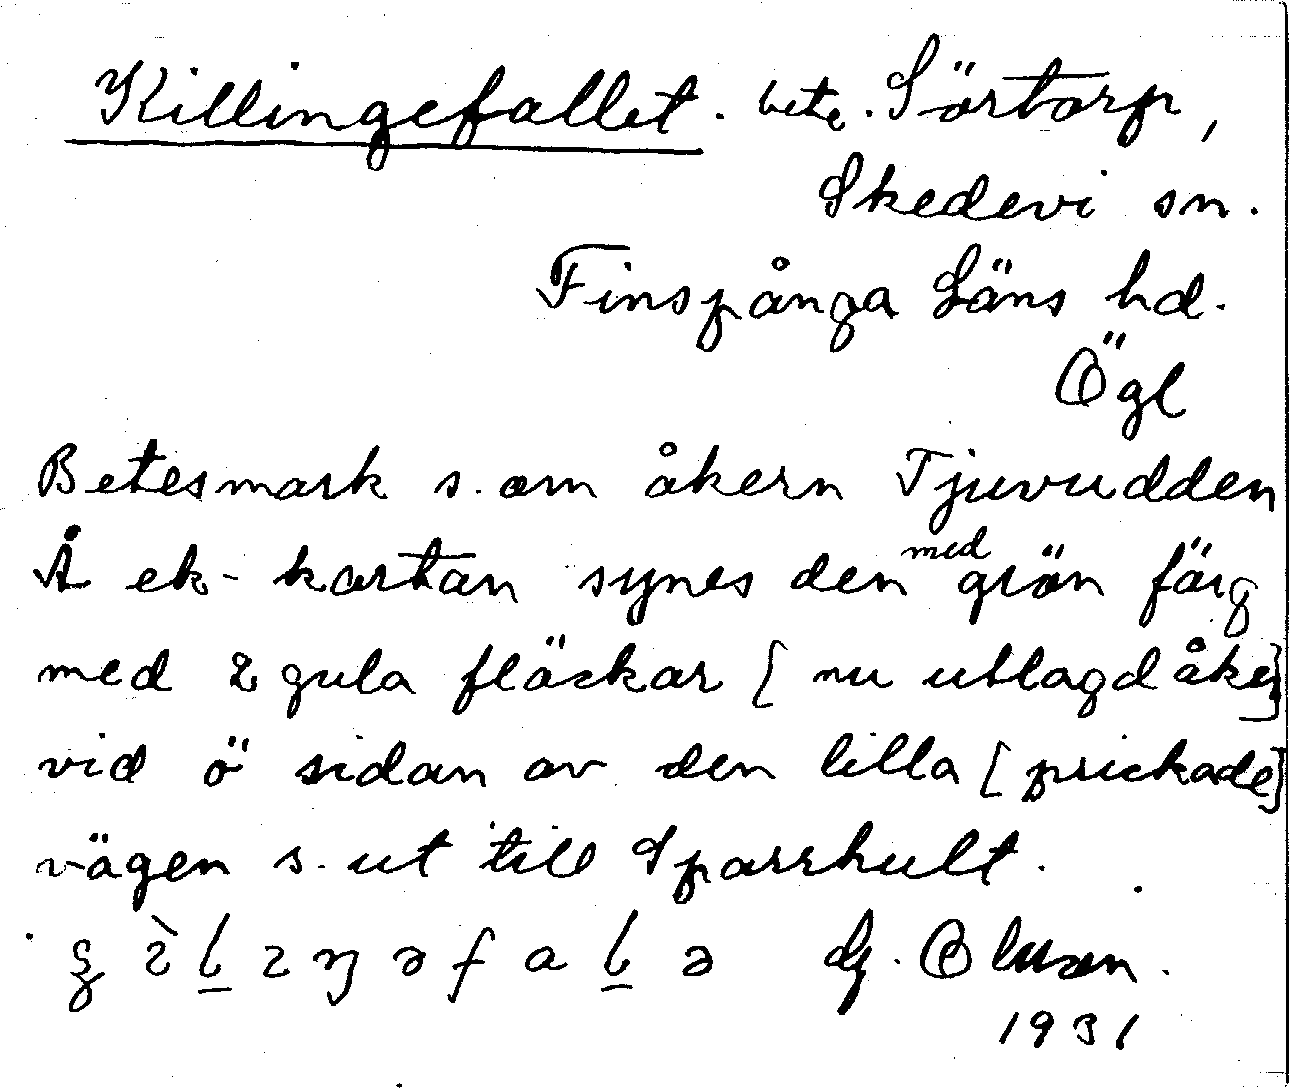 Killingefallet. bete. Sörtorp,
Skedevi sn.
Finspånga Läns hd.
Ögl
Betesmark s. om åkern Tjuvudden
Å ek-kartan synes den med grön färg
med 2 gula fläckar [nu utlagd åker]
vid ö sidan av den lilla [prickade]
vägen s. ut till Sparrhult.
G. Olsson.
1931